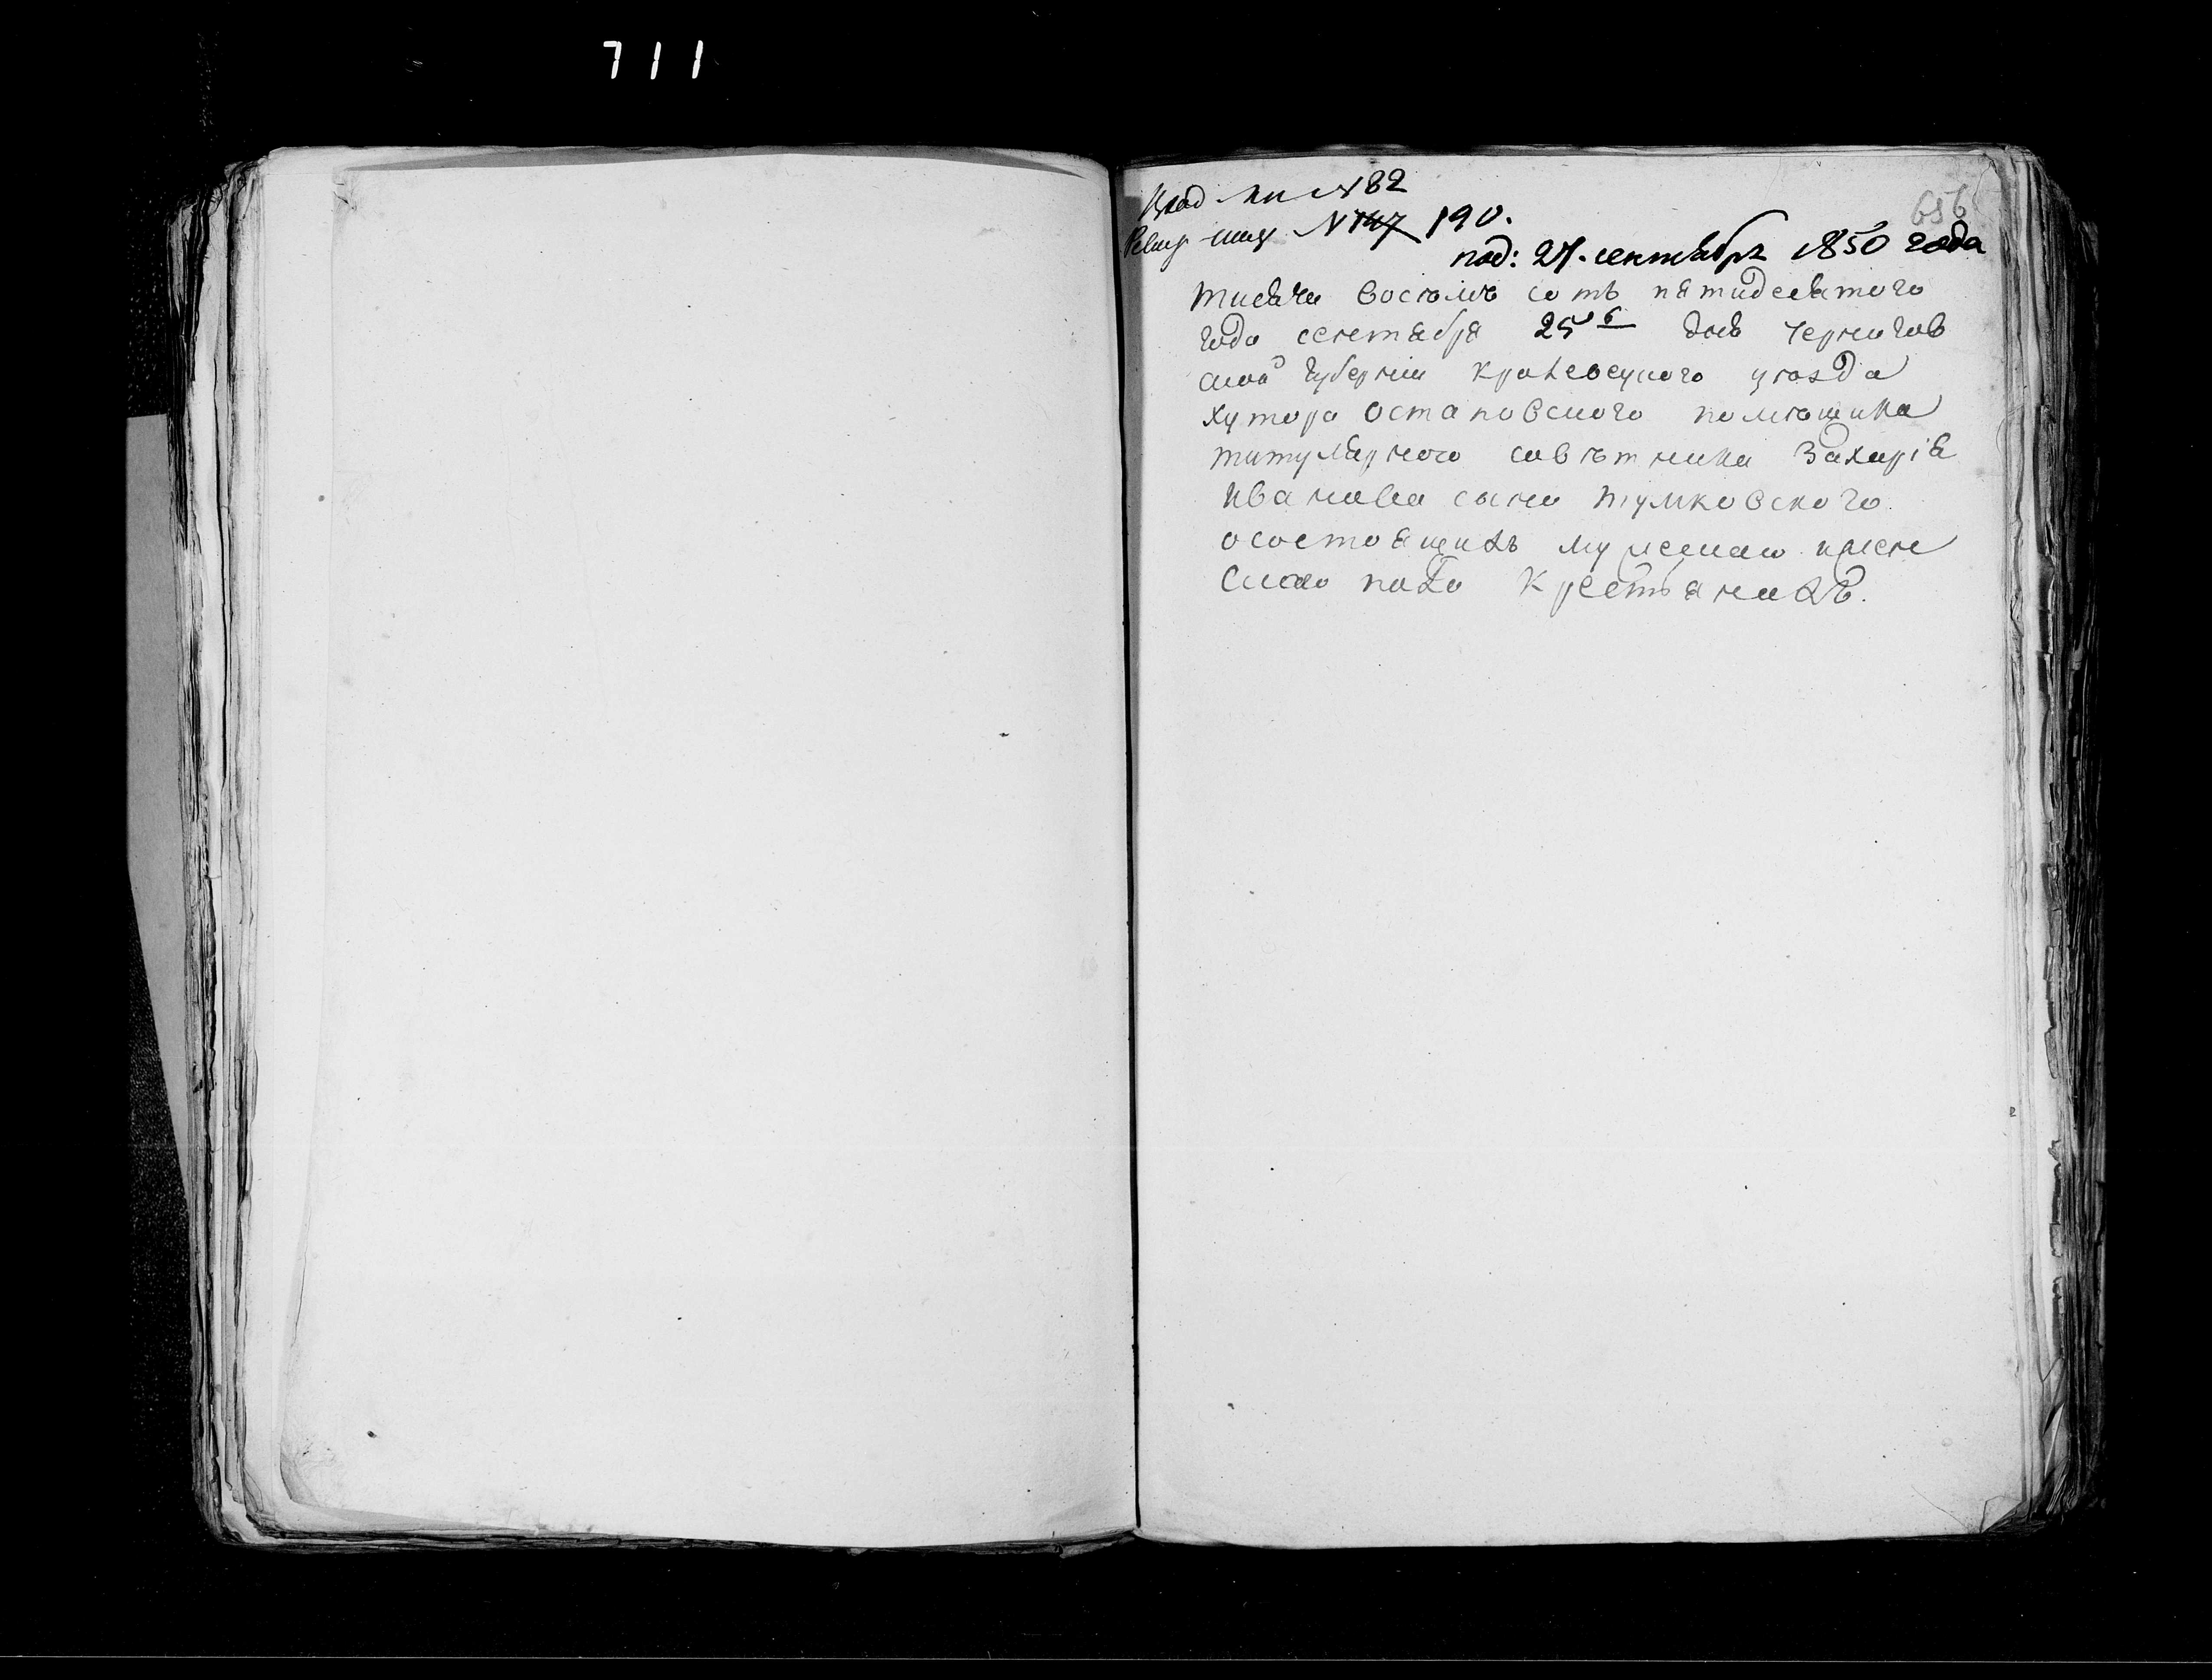 711
656
Вход ин N 82
Ревиз N 147 190.
под: 27. сентября 1850 года
тисячи восюмъ сотъ пятидесятого
года сентября 25го дня чернигов
ской Губернии кролевецкого уюзда
хутора Остаповского помющика
титулярного савютника Захарія
Иванова сына Тумковского
осостоящихъ мужеска и женс
скаго пола крестьянахъ.